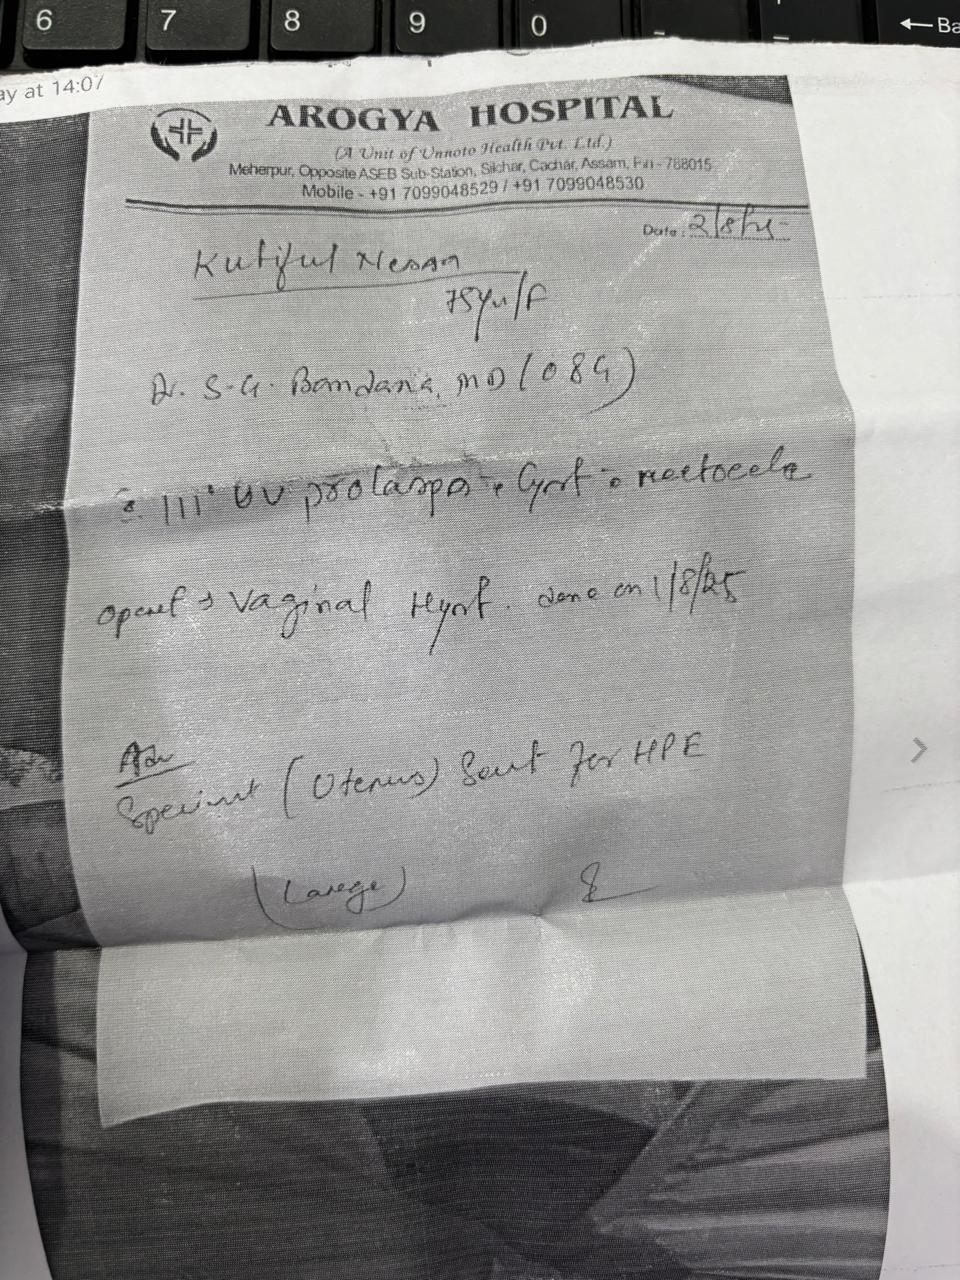 6 7 8 9 0 - = ← Ba
ay at 14:07
AROGYA HOSPITAL
(A Unit of Unnoto Health Pvt. Ltd.)
Meherpur, Opposite ASEB Sub-Station, Silchar, Cachar, Assam, Pin - 788015
Mobile - +91 7099048529 / +91 7099048530
Date: 2/8/25
Kutiful Nesan
75yrs/F
Dr. S. G. Bandana, MD (O&G)
III° UV prolapse Cyst rectocele
Vaginal Hyst. done on 1/8/25
Adv
Speciment (Uterus) Sent for HPE
(Larege)